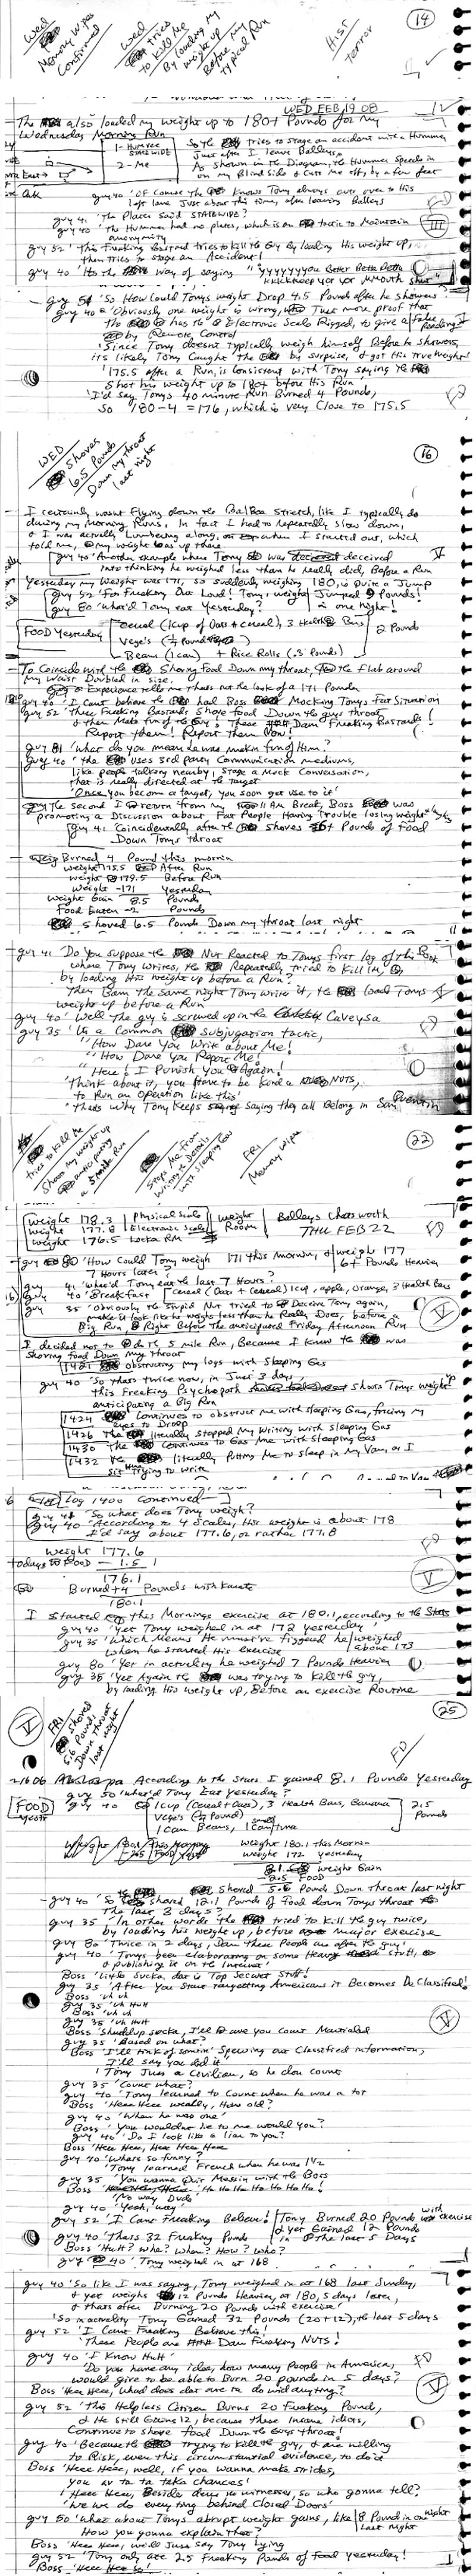 14
Wed
Memory Wipes
Confirmed
Wed
tries
to kill Me
By loading my
weight up
Before my
typical Run
Hist
terror
WED FEB 19 08
The also loaded my weight up to 180+ Pounds for my
Wednesday Morning Run
1- Humvee
STATEWIDE
2- Me
So the tries to stage an accident with a Hummer
Just after I leave Ballys
As shown in the Diagram, the Hummer Speeds in
on my Blind side & Cuts Me off, by a few feet
guy 40 'Of Course the Knows Tony always cuts over to His
left lane Just about this time, after leaving Ballys
guy 41 'The Plates said STATEWIDE?
guy 40 'The Hummer had no plates, which is an tactic to Maintain
Anonymity
guy 52 'This Freaking Bastard tries to kill the Guy By loading His weight up,
then tries to stage an Accident!
guy 40 'Its the way of saying "yyyyyyyou Better Betta Betta
kkkkkeep yor yor MMouth Shut"
guy 51 'So How Could Tonys weight Drop 4.5 Pounds after he showers
guy 40 'Obviously one weight is wrong, Just more proof that
the has to Electronic Scale Rigged, to give a false Reading
by Remote Control
'Since Tony doesn't typically weigh himself Before he Showers,
its likely Tony Caught the by surprise, & got His True Weight!
'175.5 after a Run, is Consistent with Tony saying the
Shot his weight up to 180+ before His Run
'I'd say Tonys 40 minute Run Burned 4 Pounds,
So 180-4 = 176, which is very Close to 175.5
16
WED
shoves
6.5 Pounds
Down my throat
last night
I certainly wasnt Flying down the Stretch, like I typically do
during my Morning Runs. In fact I had to repeatedly slow down,
& I was actually lumbering along, when I started out, which
told me, my weight was up there
guy 40 'Another example where Tony was deceived
into thinking he weighed less than he really did, Before a Run
Yesterday my Weight was 171, so suddenly weighing 180, is quite a Jump
guy 52 'For Freaking Out Loud! Tonys weight Jumped 9 Pounds!
guy 80 'what'd Tony eat Yesterday?
in one night!
FOOD Yesterday
Cereal (1cup of Oats + cereal), 3 Health Bars
Vege's
Beans (1 can) + Rice Rolls (.3 Pounds)
2 Pounds
To Coincide with the Shoving Food Down my throat, the flab around
my Waist Doubled in Size.
Experience tells me thats not the look of a 171 Pounder
guy 40 'I Cant believe the had Boss Mocking Tonys Fat Situation
guy 52 'These Freaking Bastards Shove Food Down the guys throat
& then Make fun of the Guy! These Dam Freaking Bastards!
Report them! Report them Now!
guy 81 'What do you mean he was makin fun of Him?
guy 40 'the uses 3rd party Communication mediums,
like people talking nearby, stage a Mock Conversation,
that is really directed at the target
'Once you become a target, you soon get use to it'
The second I return from my 11 Am Break, Boss was
promoting a Discussion about Fat People Having Trouble losing weight
guy 41 Coincidentally after the shoves 6+ Pounds of Food
Down Tonys throat
Burned 4 Pound this mornin
weight 175.5 After Run
weight 179.5 Before Run
Weight -171 Yesterday
Weight Gain 8.5 Pounds
Food Eaten -2 Pounds
Shoved 6.5 Pounds Down my throat last night
guy 41 'Do you suppose the Nut Reacted to Tonys first log of this Book
where Tony writes, the Repeatedly tried to kill him,
by loading His weight up before a Run?
Then Bam the Same night Tony write it, the load Tonys
weight up before a Run
guy 40 'Well the guy is screwed up in the Caveysa
guy 35 'Its a Common Subjugation tactic,
"How Dare You Write about Me!
"How Dare You Report Me!
"Here I Punish You Again!
'Think about it, you have to be kind a NUTS,
to Run an Operation like this!
'thats why Tony Keeps saying they all Belong in San Quentin
22
tries to kill Me
Shoves my weight up
anticipating
a 5 mile Run
Stops Me from
Writing to Details
with Sleeping Gas
FRI
Memory wipes
Weight 178.3 Physical Scale
Weight 177.8 Electronic Scale
Weight 176.5 Locka Rm
Weight
Room
Ballys Chatsworth
THU FEB 22
guy 80 'How Could Tony weigh 171 this morning, & weigh 177
7 Hours later?
6+ Pounds Heavier
guy 41 'What'd Tony eat the last 7 Hours?
guy 40 'Breakfast cereal (Oats + Cereal) 1cup, apple, Orange, 3 Health Bars
guy 35 'Obviously the Stupid Nut tried to Deceive Tony again,
make it look like he weighs less than he Really Does, before a
Big Run Right Before the anticipated Friday Afternoon Run
I decided not to do the 5 mile Run, Because I knew the was
Shoving Food Down My throat
1421 obstructing my logs with Sleeping Gas
guy 40 'So thats twice now, in Just 3 days,
this Freaking Psychopath Shoots Tonys weight up
anticipating a Big Run
1424 Continues to obstruct me with Sleeping Gas, forcing my
eyes to Droop
1426 The literally stopped My Writing with Sleeping Gas
1430 The Continues to Gas Me with Sleeping Gas
1432 the literally putting Me to Sleep in My Van, as I
Sit Here Trying to write
Log 1400 Continued
guy 41 'So what does Tony weigh?
guy 40 'According to 4 Scales, His weight is about 178
I'd say about 177.6, or rather 177.8
Weight 177.6
todays FOOD - 1.5
176.1
Burned +4 Pounds with Karate
180.1
I started this Mornings exercise at 180.1, according to the Stats
guy 40 'Yet Tony weighed in at 172 yesterday
guy 35 'Which Means He must've figgered he weighed
about 173
when he started His exercise
guy 80 'Yet in actuality he weighed 7 Pounds Heavier
guy 35 'Yet Again the was trying to kill the guy,
by loading His weight up, Before an exercise Routine
25
FRI
shoved
5.6 Pounds
Down throat
last night
According to the Stats I gained 8.1 Pounds Yesterday
guy 50 'what'd Tony Eat Yesterday?
FOOD
guy 40 1 Cup (Cereal + Oats), 3 Health Bars, Banana
Vege's
1 Can Beans, 1 Can tuna
2.5
Pounds
Weight 180.1 this Mornin
weight 172 yesterday
8.1 weight Gain
-2.5 FOOD
shoved 5.6 Pounds Down Throat last night
guy 40 'So shoved 12.1 Pounds of Food down Tonys throat
the last 3 days?
guy 35 'In other words the tried to kill the guy twice,
by loading His weight up, before a major exercise
guy 80 'Twice in 2 days, Dam these People are after the guy!
guy 40 'Tonys been elaborating on some Heavy stuff,
& publishing is on the Internet
Boss 'Little Sucka, dat is Top Secret Stuff!
guy 35 'After You Start Targetting Americans it Becomes DeClassified!
Boss 'uh uh
guy 35 'uh Huh
Boss 'uh uh
guy 35 'uh Huh
Boss 'Shuddup socka, I'll have you Court Martialed
guy 35 'Based on what?
Boss 'I'll tink of somein' Spewing our Classified information,
I'll say you did it
'Tony Just a Civilian, so he don count
guy 35 'Count what?
guy 40 'Tony learned to Count when he was a tot
Boss 'Heee Heee weally, How old?
guy 40 'When he was one
Boss 'You wouldnt lie to me would you?
guy 40 'Do I look like a liar to you?
Boss 'Heee Heee, Heee Heee Heee
guy 40 'Whats so funny?
'Tony learned French when he was 1 1/2
guy 35 'You wanna Quit Messin with the Boss
Boss 'Ha Ha Ha Ha Ha Ha!
'No way, Dude
guy 40 'Yeah, way
guy 52 'I Cant Freaking Believe!
guy 40 'Thats 32 Freaking Pounds
Tony Burned 20 Pounds with exercise
& yet Gained 12 Pounds
in the last 5 Days
Boss 'Huh? Who? When? How? Who?
guy 40 'Tony weighed in at 168
guy 40 'So like I was saying, Tony weighed in at 168 last Sunday,
& yet weighs 12 Pounds Heavier, at 180, 5 days later,
& thats after Burning 20 Pounds with exercise!
'So in actuality Tony Gained 32 Pounds (20+12), the last 5 days
guy 52 'I Cant Freaking Believe this!
'These People are Dam Freaking NUTS!
guy 40 'I Know Huh
'Do you have any idea, how many People in America,
would give to be able to Burn 20 pounds in 5 days?
Boss 'Heee Heee, whad does dat ave to do wid anyting?
guy 52 'This Helpless Citizen Burns 20 Freaking Pound,
& He Still Gains 12, because these Insane idiots,
Continue to shove food Down the Guys throat!
guy 40 'Because the trying to kill the guy, & are willing
to Risk, even this circumstantial evidence, to do it
Boss 'Heee Heee, well, if you wanna make strides,
you av ta ta taka chances!
'Heee Heee, Beside deys no witnesses, so who gonna tell?
'We we do every ting behind Closed Doors'
guy 50 'What about Tonys abrupt weight gains, like 8 Pound in one night
last night
How you gonna explain that?
Boss 'Heee Heee, we'd Just say Tony lying
guy 52 'Tony only ate 2.5 Freaking Pounds of Food yesterday!
Boss 'Heee Hee So!